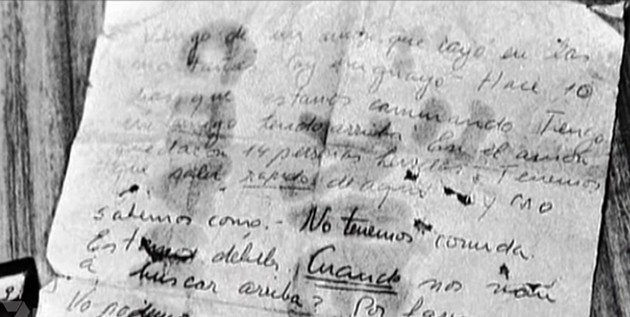 Vengo de un avión que cayó en las
montañas Soy uruguayo - Hace 10
dias que estamos caminando. Tengo
un amigo herido arriba. En el avion
quedaron 14 personas heridas. Tenemos
que salir rapido de aqui y no
sabemos como. - No tenemos comida.
debiles. Cuando nos van
a buscar arriba? Por favor